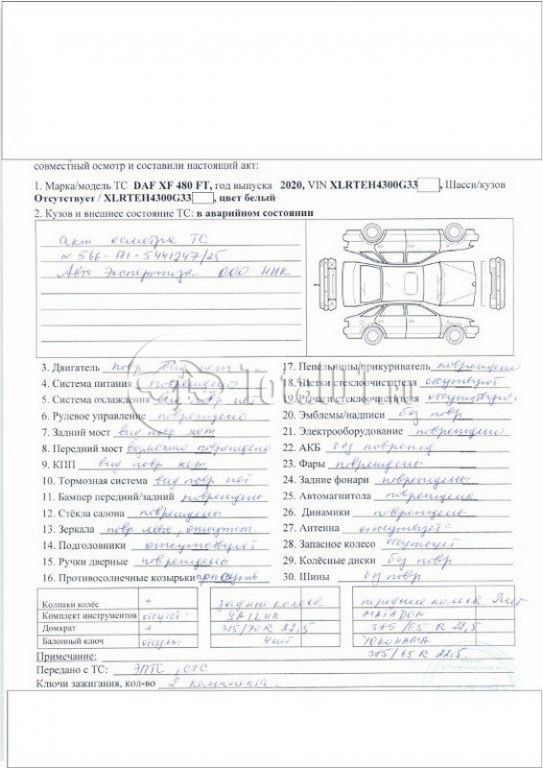 совместный осмотр и составили настоящий акт:
1. Марка/модель ТС DAF XF 480 FT, год выпуска 2020, VIN XLRTEH4300G33 , Шасси/кузов
Отсутствует / XLRTEH4300G33 , цвет белый
2. Кузов и внешнее состояние ТС: в аварийном состоянии
Акт осмотра ТС
№ 566-171-5441247/25
Авто Экспертиза ООО НИК
3. Двигатель повр
4. Система питания повреждено
5. Система охлаждения вид повр
6. Рулевое управление повреждено
7. Задний мост вид повр нет
8. Передний мост возможно повреждено
9. КПП вид повр нет
10. Тормозная система вид повр нет
11. Бампер передний/задний повреждено
12. Стёкла салона повреждены
13. Зеркала повр левое,
14. Подголовники отсутствуют
15. Ручки дверные повреждено
16. Противосолнечные козырьки
17. Пепельницы/прикуриватель повреждено
18. Щетки стеклоочистителя отсутствуют
19. Рычаги стеклоочистителя отсутствуют
20. Эмблемы/надписи без повр
21. Электрооборудование повреждено
22. АКБ без поврежд
23. Фары повреждены
24. Задние фонари повреждены
25. Автомагнитола повреждена
26. Динамики повреждены
27. Антенна отсутствует
28. Запасное колесо отсутствует
29. Колёсные диски без повр
30. Шины без повр
Колпаки колёс +
Комплект инструментов отсутст
Домкрат +
Балонный ключ отсутст
задние колеса
SAILUN
315/70 R 22.5
4 шт
передние колеса
МАТАДОР
385/65 R 22,5
YOKOHAMA
385/65 R 22.5
Примечание:
Передано с ТС: ЭПТС, СТС
Ключи зажигания, кол-во 2 комплекта